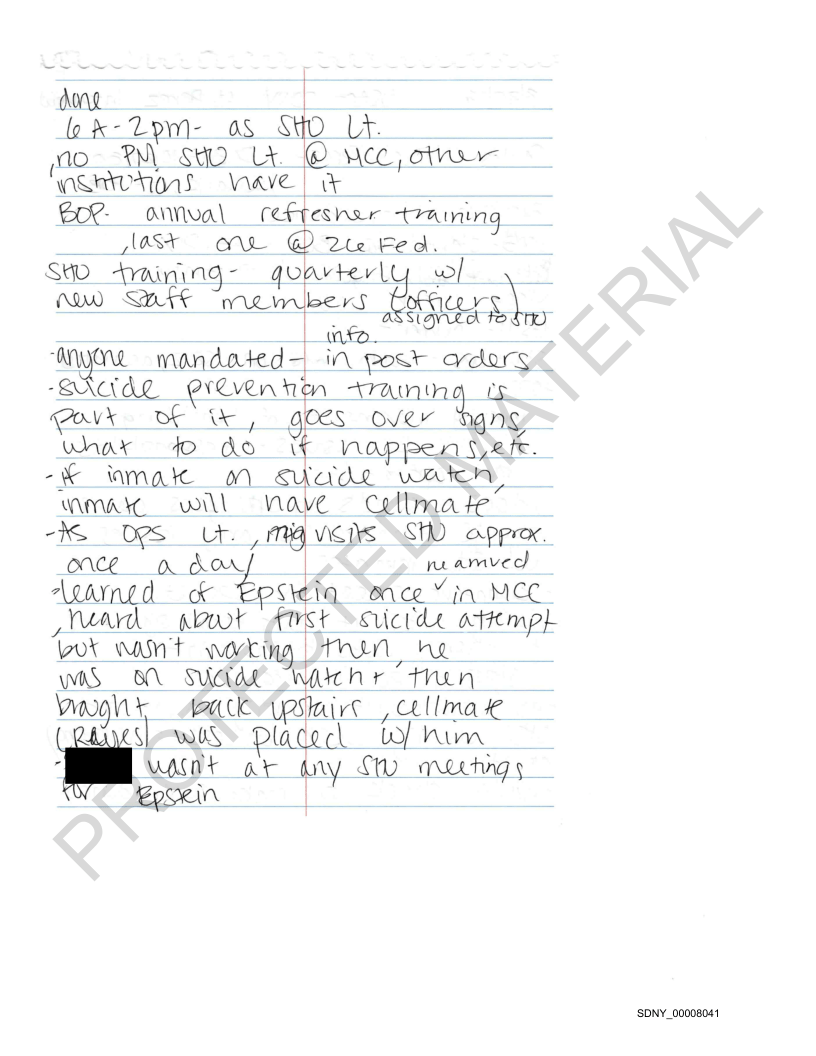 done
6A-2pm- as SHU Lt.
,no PM SHU Lt. @ MCC, other
institutions have it
BOP- annual refresher training
,last one @ 26 Fed.
SHU training- quarterly w/
new staff members (officers)
assigned to SHU
info.
-anyone mandated- in post orders
-suicide prevention training is
part of it, goes over signs,
what to do if happens, etc.
-if inmate on suicide watch,
inmate will have cellmate
-As Ops Lt., visits SHU approx.
once a day
he arrived
-learned of Epstein once in MCC
,heard about first suicide attempt
but wasn't working then, he
was on suicide watch + then
brought back upstairs, cellmate
(Reyes) was placed w/ him
- wasn't at any SHU meetings
for Epstein
PROTECTED MATERIAL
SDNY_00008041